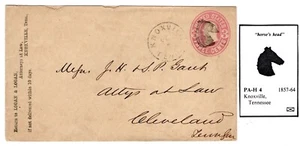 Return to LOGAN & LOGAN,
Attorneys at Law,
KNOXVILLE, Tenn.,
If not delivered within 10 days.
KNOXVILLE
Messrs. J. H. & S. P. Gaut
Attys at Law
Cleveland
Tennessee
"horse's head"
PA-H 4 1857-64
Knoxville,
Tennessee